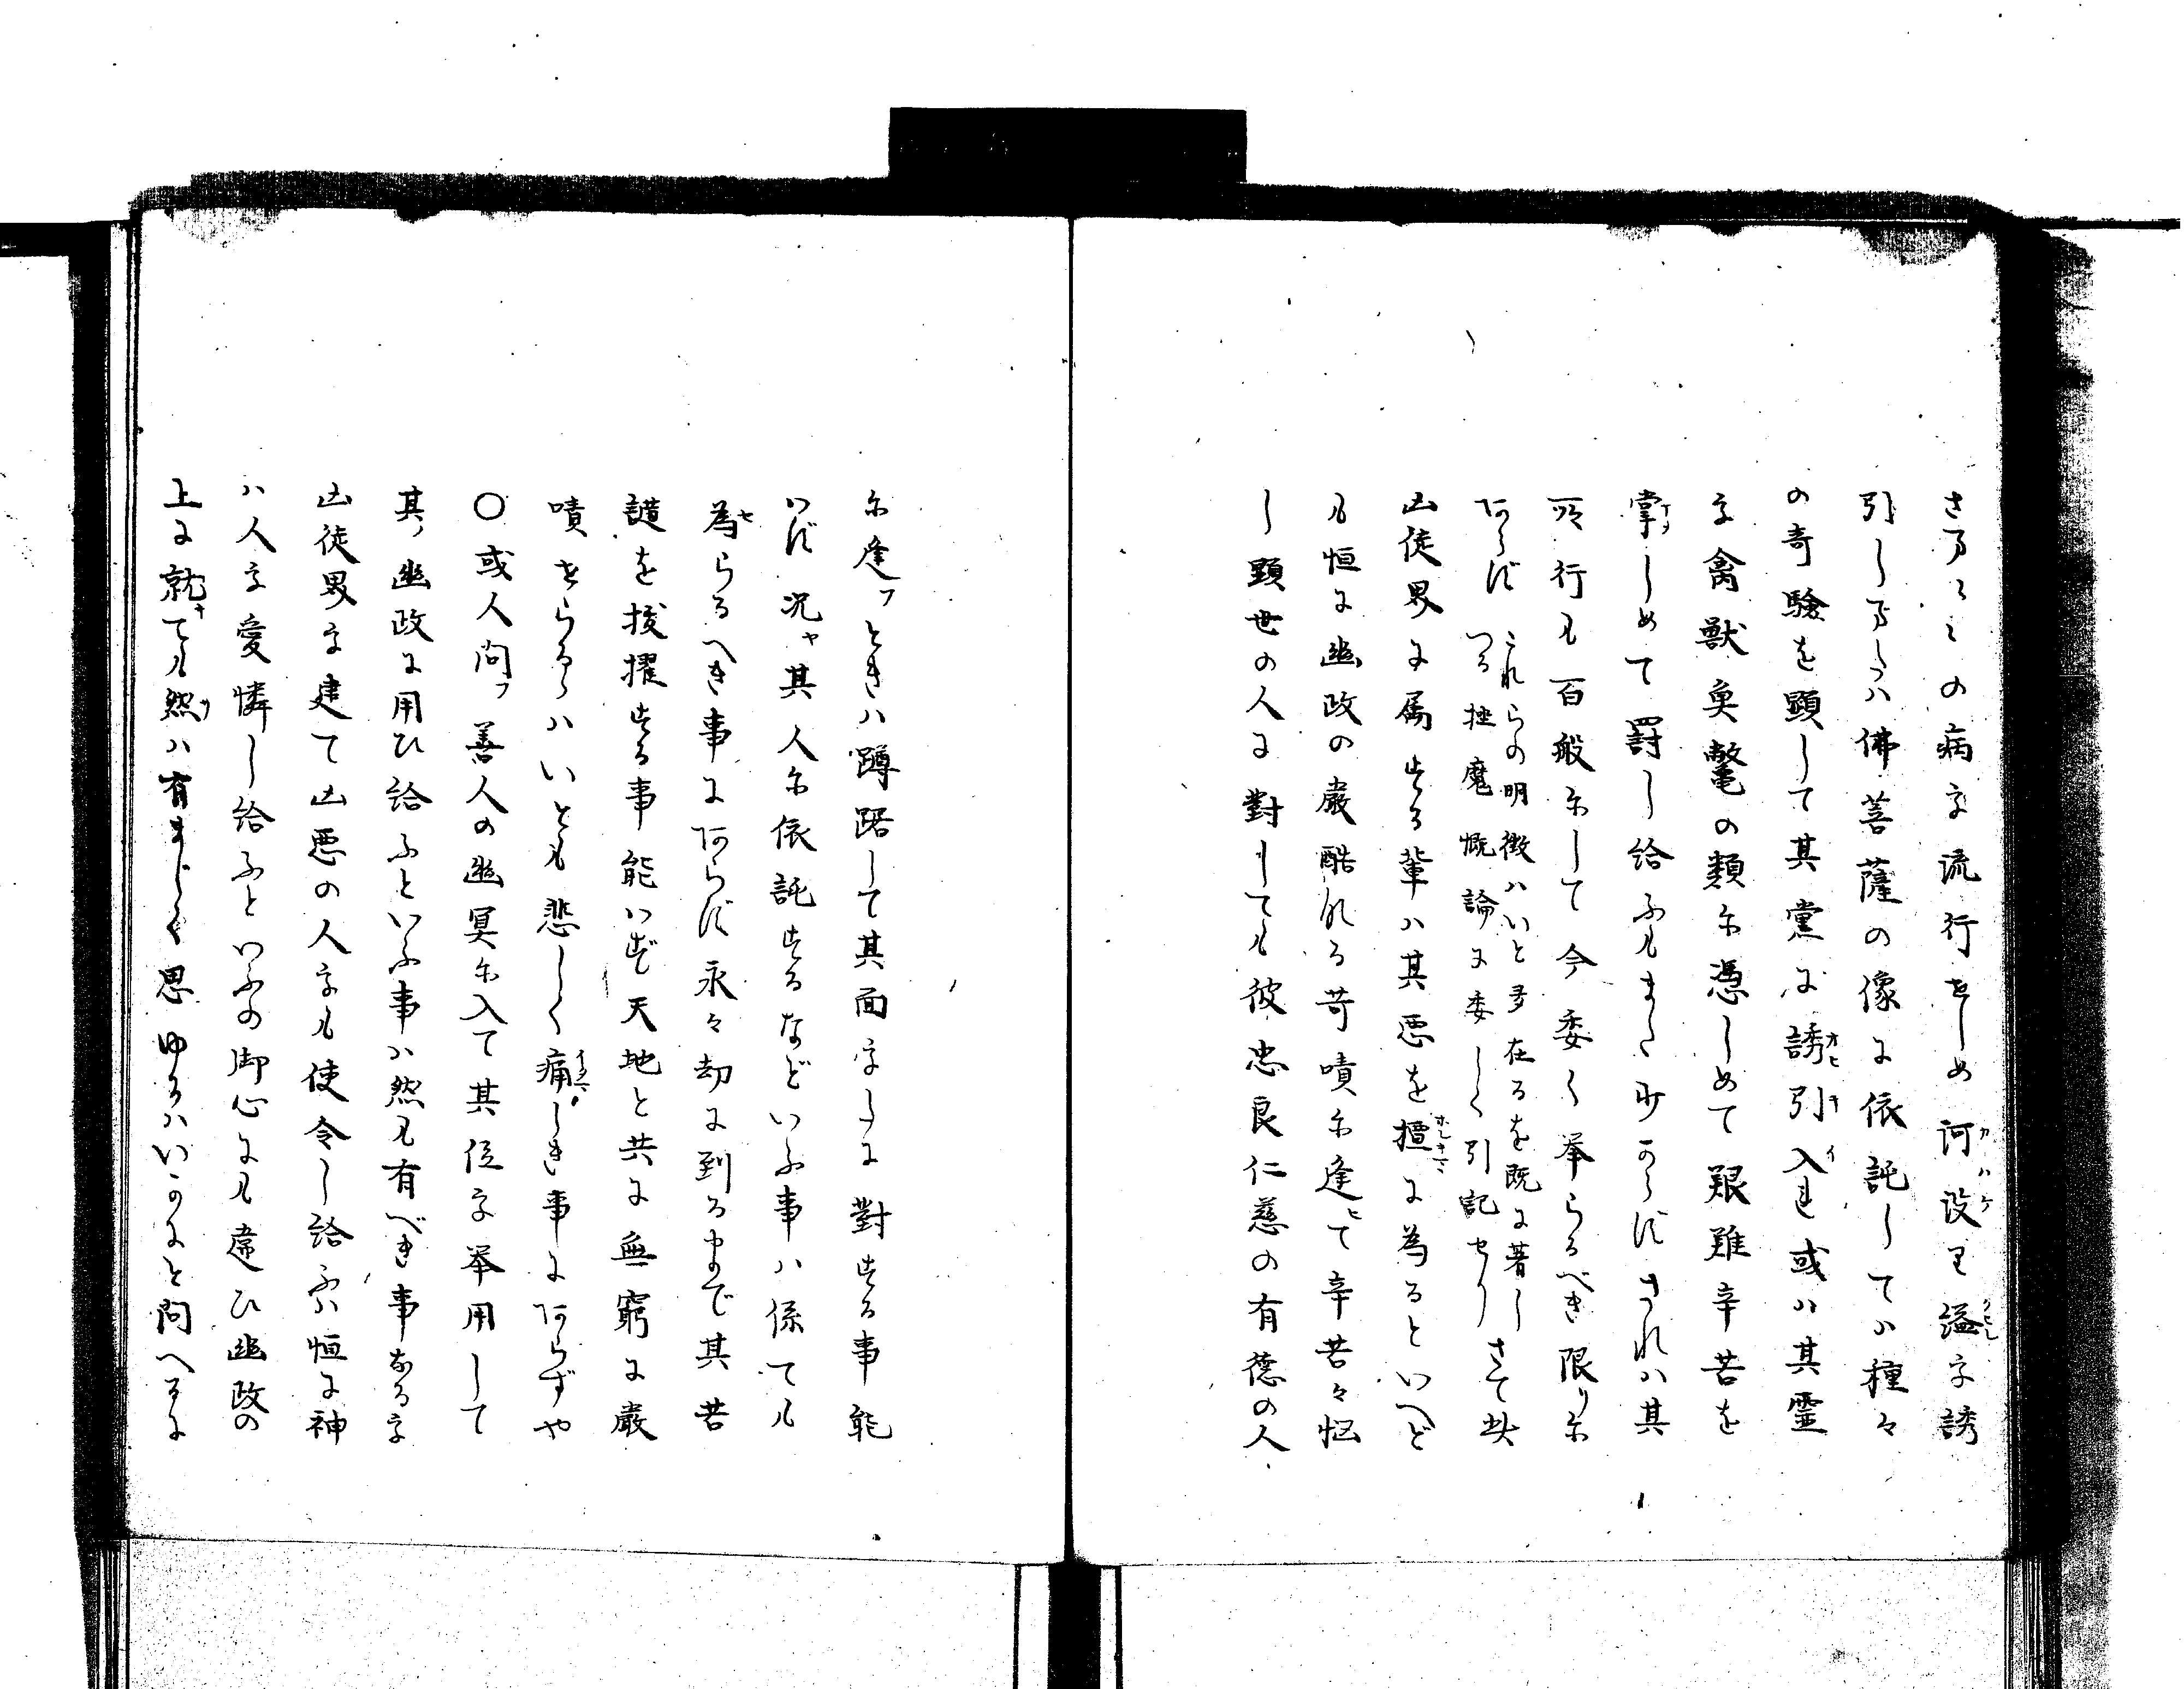 さま〳〵の病を流行せしめ訶設て謚を誘
引しまたハ佛菩薩の像に依託してハ種々
の奇驗を顕して其党に誘引入れ或ハ其霊
を禽獣奥鼈の類に憑しめて艱難辛苦を
掌しめて罰し給ふもまた少からずされハ其
所行も百般にして今委く挙らるべき限りに
あらず これらの明徴ハいと多在るを既に著し
つる挫魔慨論に委しく引記せり さて此
凶徒界に属せる輩ハ其悪を擅に為るといへど
も恒に幽政の嚴酷なる苛嘖に逢て辛苦々悩
し顕世の人に對しても彼忠良仁慈の有徳の人
に逢フときハ蹲踞して其面をしに對せる事能
はず況ヤ其人に依託せるなどいふ事ハ係ても
為らるべき事にあらず永々劫に到るまで其苦
譴を抜擢せる事能はず天地と共に無窮に嚴
嘖せらるゝハいとも悲しく痛しき事にあらずや
〇或人問フ善人の幽冥に入て其位を挙用して
其幽政に用ひ給ふといふ事ハ然も有べき事なるを
凶徒界を建て凶悪の人をも使令し給ふハ恒に神
ハ人を愛憐し給ふといふの御心にも違ひ幽政の
上に就ても然ハ有まじく思ゆるハいかにと問へるに